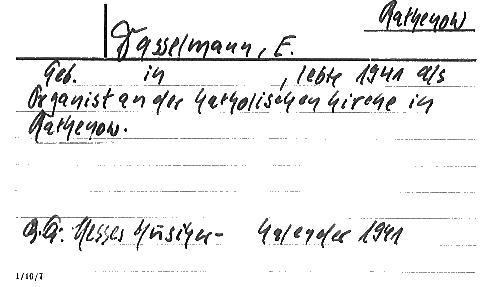 Rathenow
Dasselmann, E.
Geb. in , lebte 1941 als
Organist an der katholischen Kirche in
Rathenow.
Hesses Musiker- Kalender 1941
1/16/7